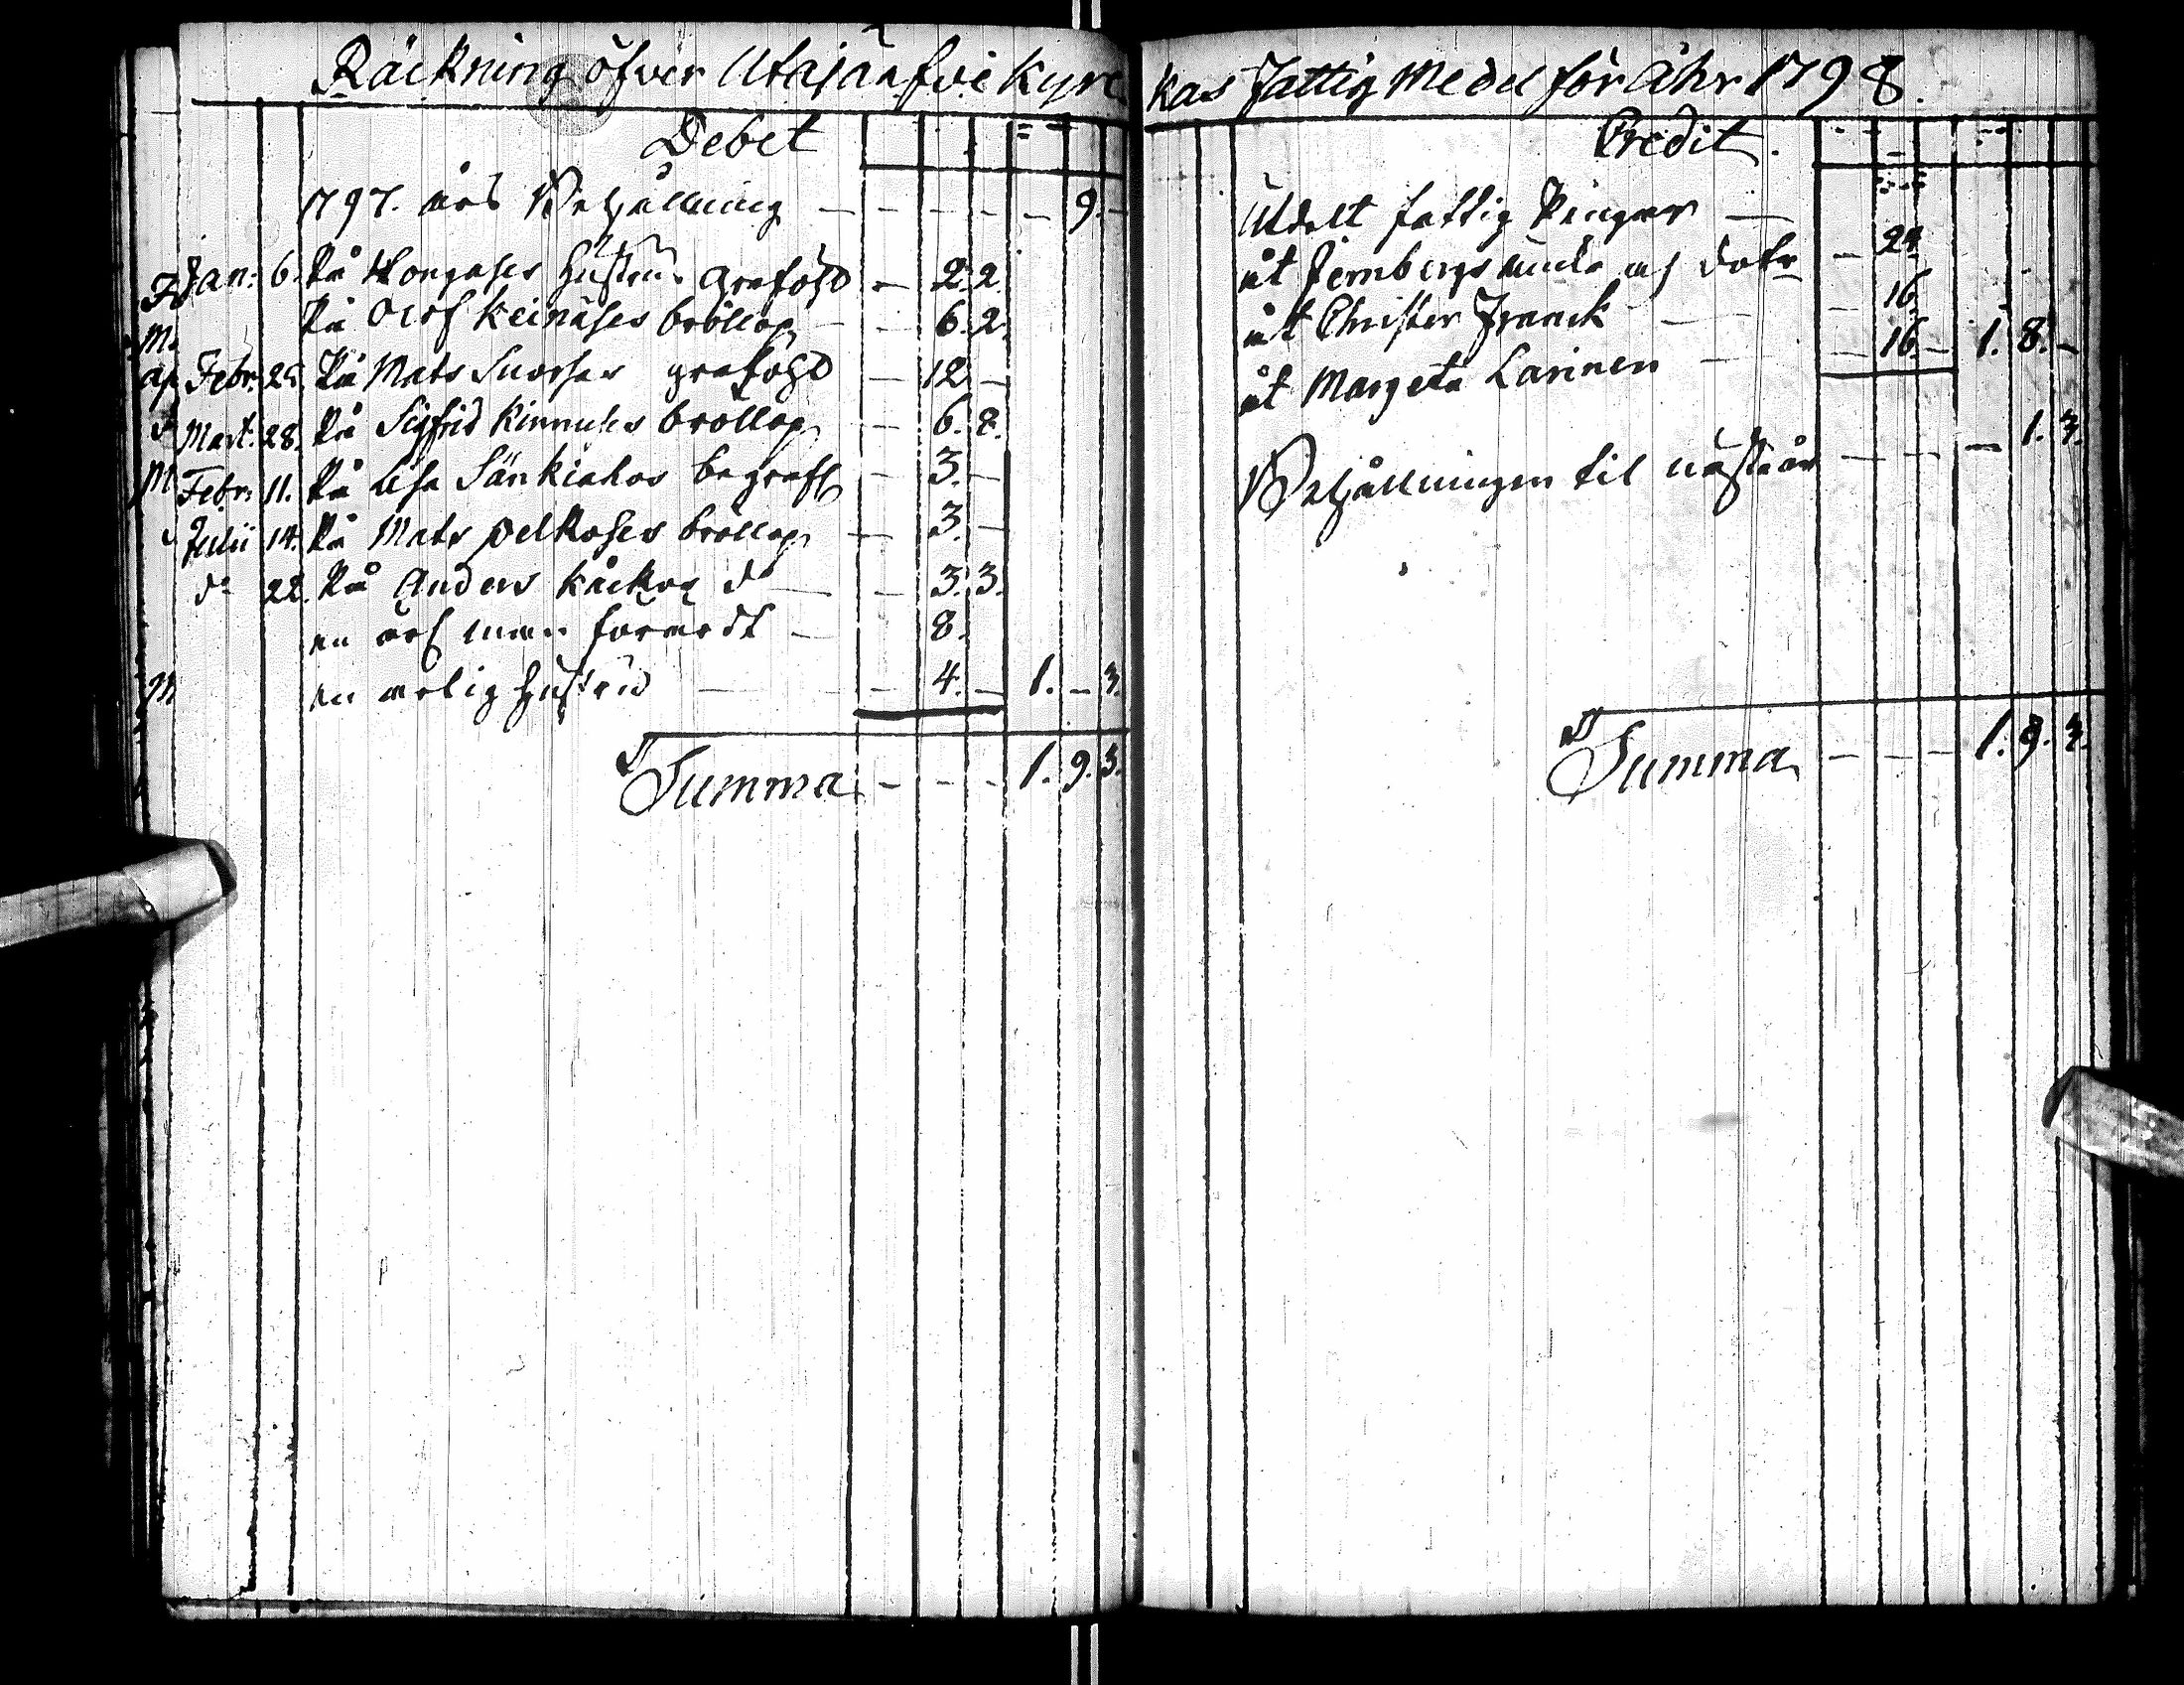 Räckning öfver Utajärfvi Kyrc
kas Fattig Medel för Åhr 1798.
Debet
1797. års Behållning — — — — — 9. —
Jan: 6. På Hongases hustrus graföhl — 2. 2.
På Olof Keinäses bröllop — — 6. 2.
Febr: 25. På Mats Suorsas graföhl — 12 —
Mart: 28. På Sigfrid Kinnules bröllop — 6. 2.
Febr: 11. På Lisa Särkiahos begrafl — 3. —
Julii 14. På Mats Pelkoses bröllop — 3. —
do 22. På Anders Kåckos do — — 3. 3.
en — 8.
en ärlig hustru — — 4. — 1. — 3.
Summa — — — 1. 9. 3.
Credit.
Utdelt fattig Pengar —
åt Jernbergs enka och dotr — 24.
åt Christer Franck — — 16.
åt Margeta Larinen — — 16. — 1. 8. —
Behållningen til nästa år — — — — 1. 3.
Summa — — — 1. 9. 3.